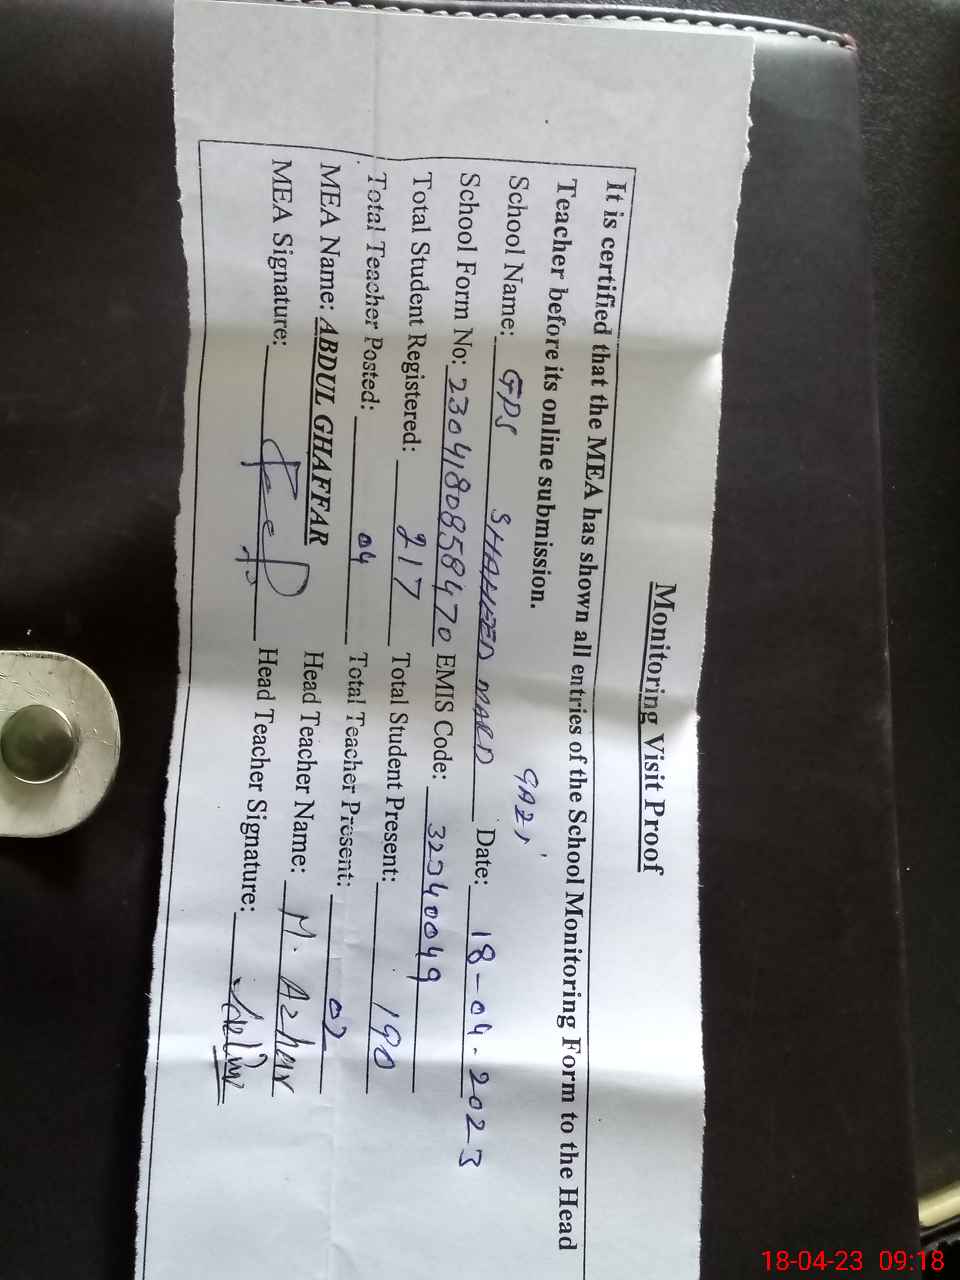 Monitoring Visit Proof
It is certified that the MEA has shown all entries of the School Monitoring Form to the Head
Teacher before its online submission.
GAZI
School Name: GPS SHAHEED MARD Date: 18-04-2023
School Form No: 2304180858470 EMIS Code: 32340049
Total Student Registered: 217 Total Student Present: 190
Total Teacher Posted: 04 Total Teacher Present: 02
MEA Name: ABDUL GHAFFAR Head Teacher Name: M. Azhar
MEA Signature: Head Teacher Signature:
18-04-23 09:18